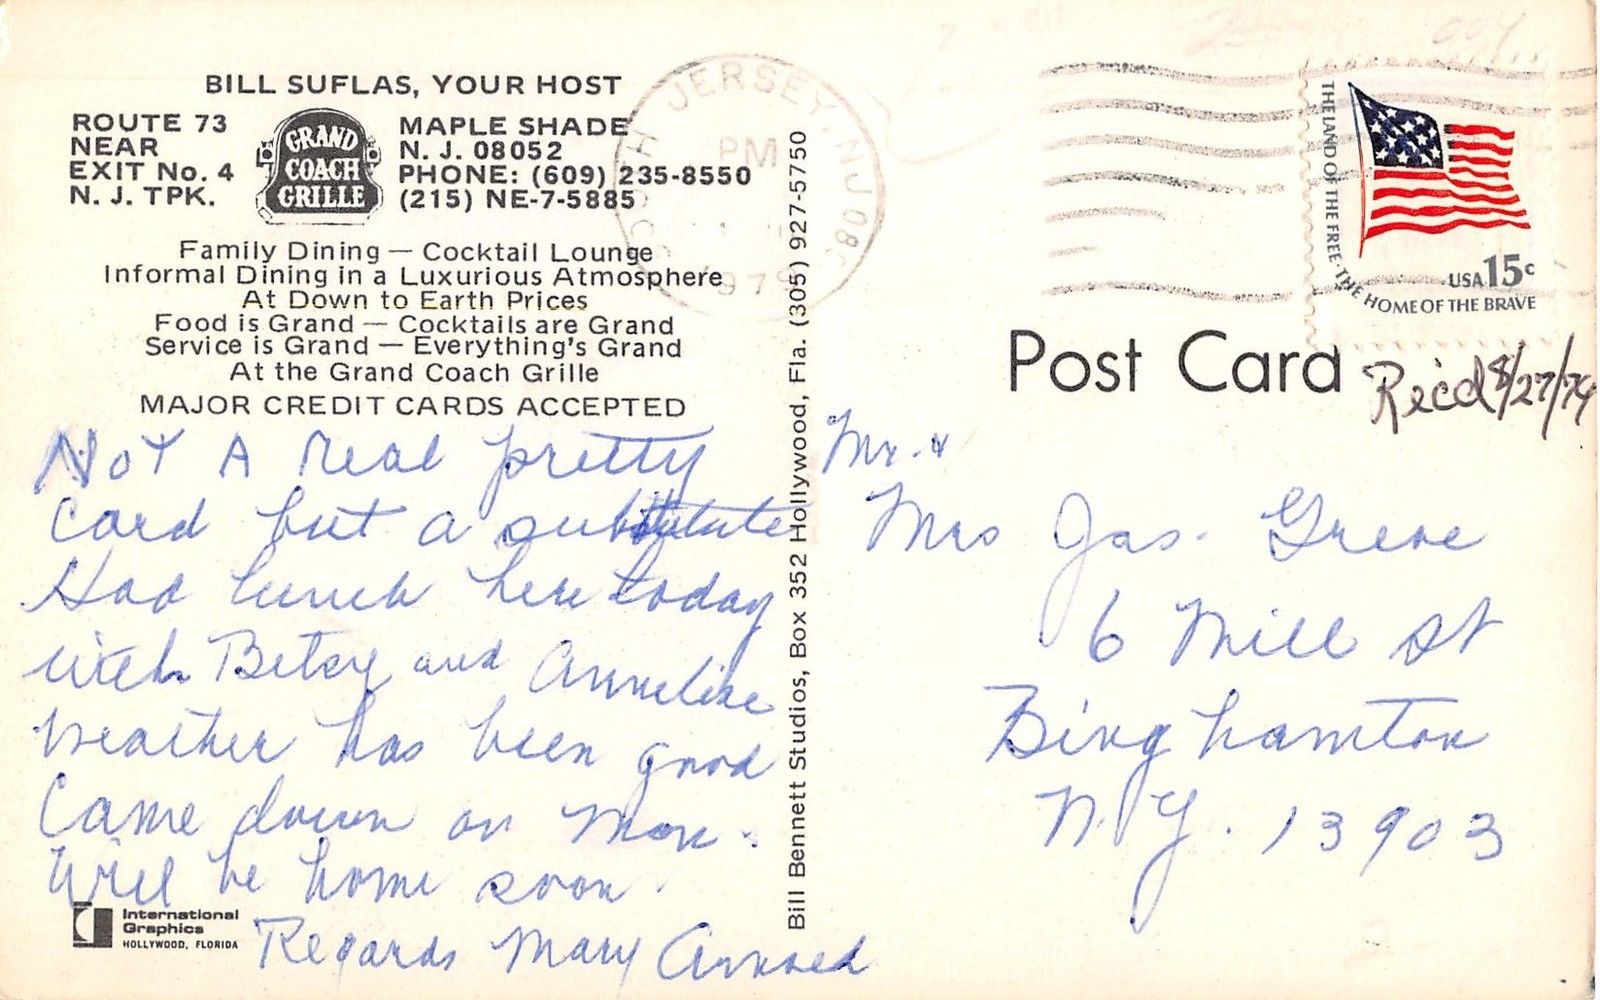 BILL SUFLAS, YOUR HOST
ROUTE 73
NEAR
EXIT No. 4
N. J. TPK.
GRAND
COACH
GRILLE
MAPLE SHADE
N. J. 08052
PHONE: (609) 235-8550
(215) NE-7-5885
Family Dining — Cocktail Lounge
Informal Dining in a Luxurious Atmosphere
At Down to Earth Prices
Food is Grand — Cocktails are Grand
Service is Grand — Everything's Grand
At the Grand Coach Grille
MAJOR CREDIT CARDS ACCEPTED
Not A real pretty
Card but a substitute
Had lunch here today
with Betsy and Anneliese
Weather has been good
Came down on Mon.
Will be home soon
Regards Mary
International
Graphics
HOLLYWOOD, FLORIDA
Bill Bennett Studios, Box 352 Hollywood, Fla. (305) 927-5750
JERSEY, NJ
PM
THE LAND OF THE FREE · THE HOME OF THE BRAVE
USA 15c
Post Card
Rec'd 8/27/79
Mr. &
Mrs Jas. Greve
6 Mill St
Binghamton
N.Y. 13903